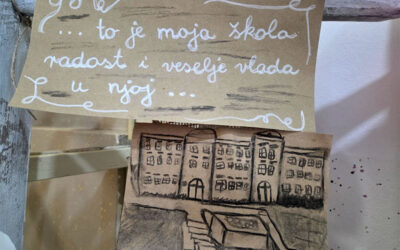 ... to je moja škola
radost i veselje vlada
u njoj ...